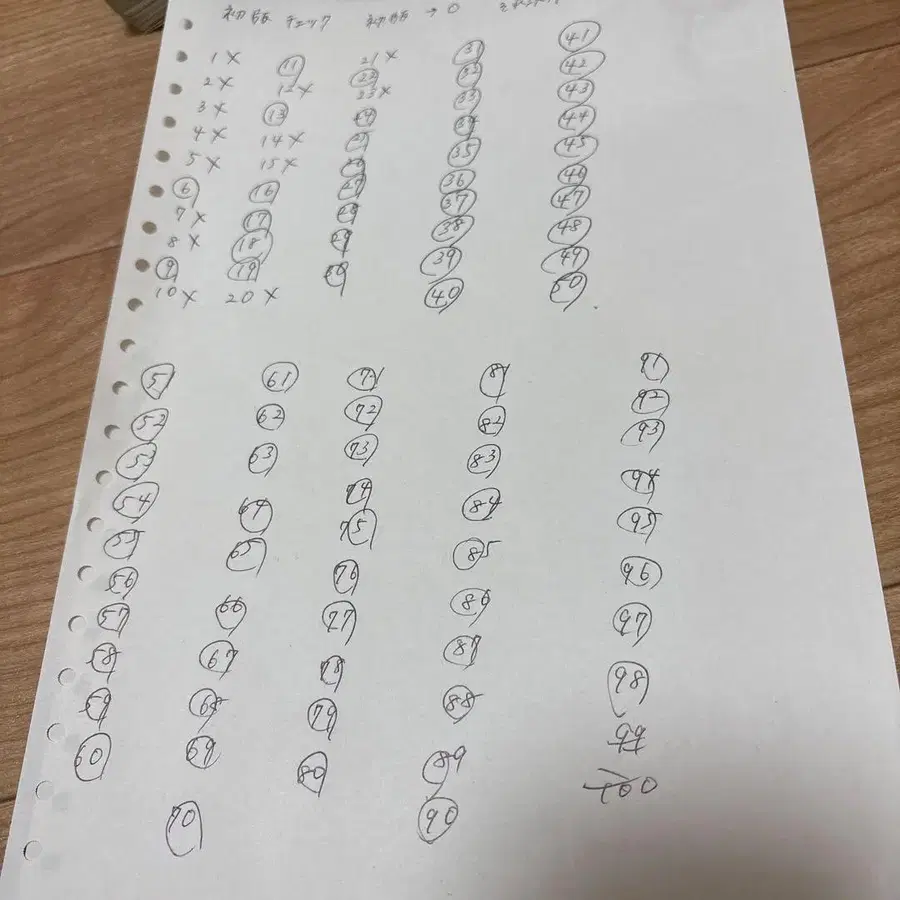 初版 チェック 初版 → ○ それ以外
1 × ⑪ 21 × ㉛ ㊶
2 × 12 × ㉒ ㉜ ㊷
3 × ⑬ 23 × ㉝ ㊸
4 × 14 × ㉔ ㉞ ㊹
5 × 15 × ㉕ ㉟ ㊺
⑥ ⑯ ㉖ ㊱ ㊻
7 × ⑰ ㉗ ㊲ ㊼
8 × ⑱ ㉘ ㊳ ㊽
⑨ ⑲ ㉙ ㊴ ㊾
10 × 20 × ㉚ ㊵ ㊿
51 61 71 81 91
52 62 72 82 92
53 63 73 83 93
54 64 74 84 94
55 65 75 85 95
56 66 76 86 96
57 67 77 87 97
58 68 78 88 98
59 69 79 89 99
60 70 80 90 100